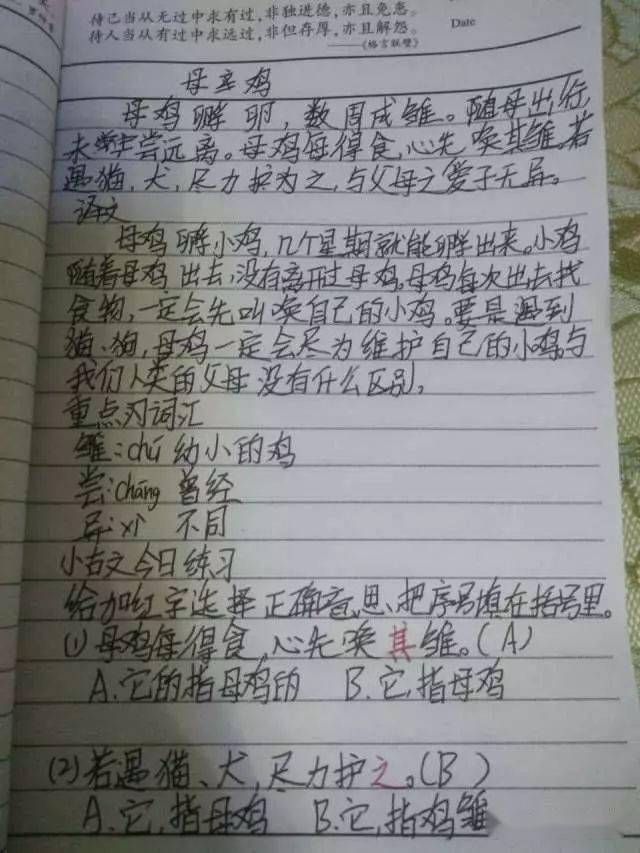 待己当从无过中求有过,非独进德,亦且免患。
待人当从有过中求远过,非但存厚,亦且解怨。
——《格言联璧》
Date
母亲鸡
母鸡孵卵,数周成雏。随母出行,
未尝远离。母鸡每得食,心先唤其雏。若
遇猫,犬,尽力护为之,与父母之爱子无异。
译文
母鸡孵小鸡,几个星期就能孵出来。小鸡
随着母鸡出去,没有离开过母鸡,母鸡每次出去找
食物,一定会先叫唤自己的小鸡。要是遇到
猫、狗,母鸡一定会尽为维护自己的小鸡,与
我们人类的父母没有什么区别,
重点词汇
雏:chú 幼小的鸡
尝:cháng 曾经
异:xì 不同
小古文今日练习
给加红字选择正确意思、把序号填在括号里。
(1)母鸡每得食,心先唤其雏。(A)
A.它的指母鸡的 B.它,指母鸡
(2)若遇猫、犬,尽力护之。(B)
A.它,指母鸡 B.它,指鸡雏